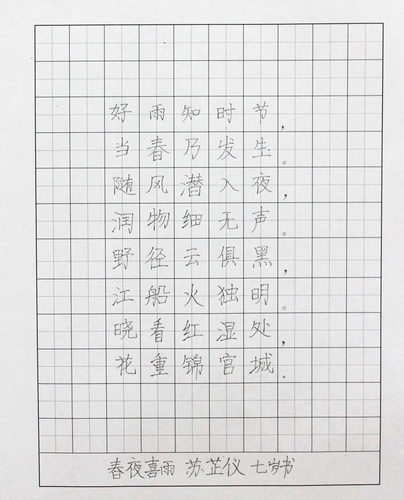 好雨知时节，
当春乃发生。
随风潜入夜，
润物细无声。
野径云俱黑，
江船火独明。
晓看红湿处，
花重锦宫城。
春夜喜雨 苏芷仪 七岁书